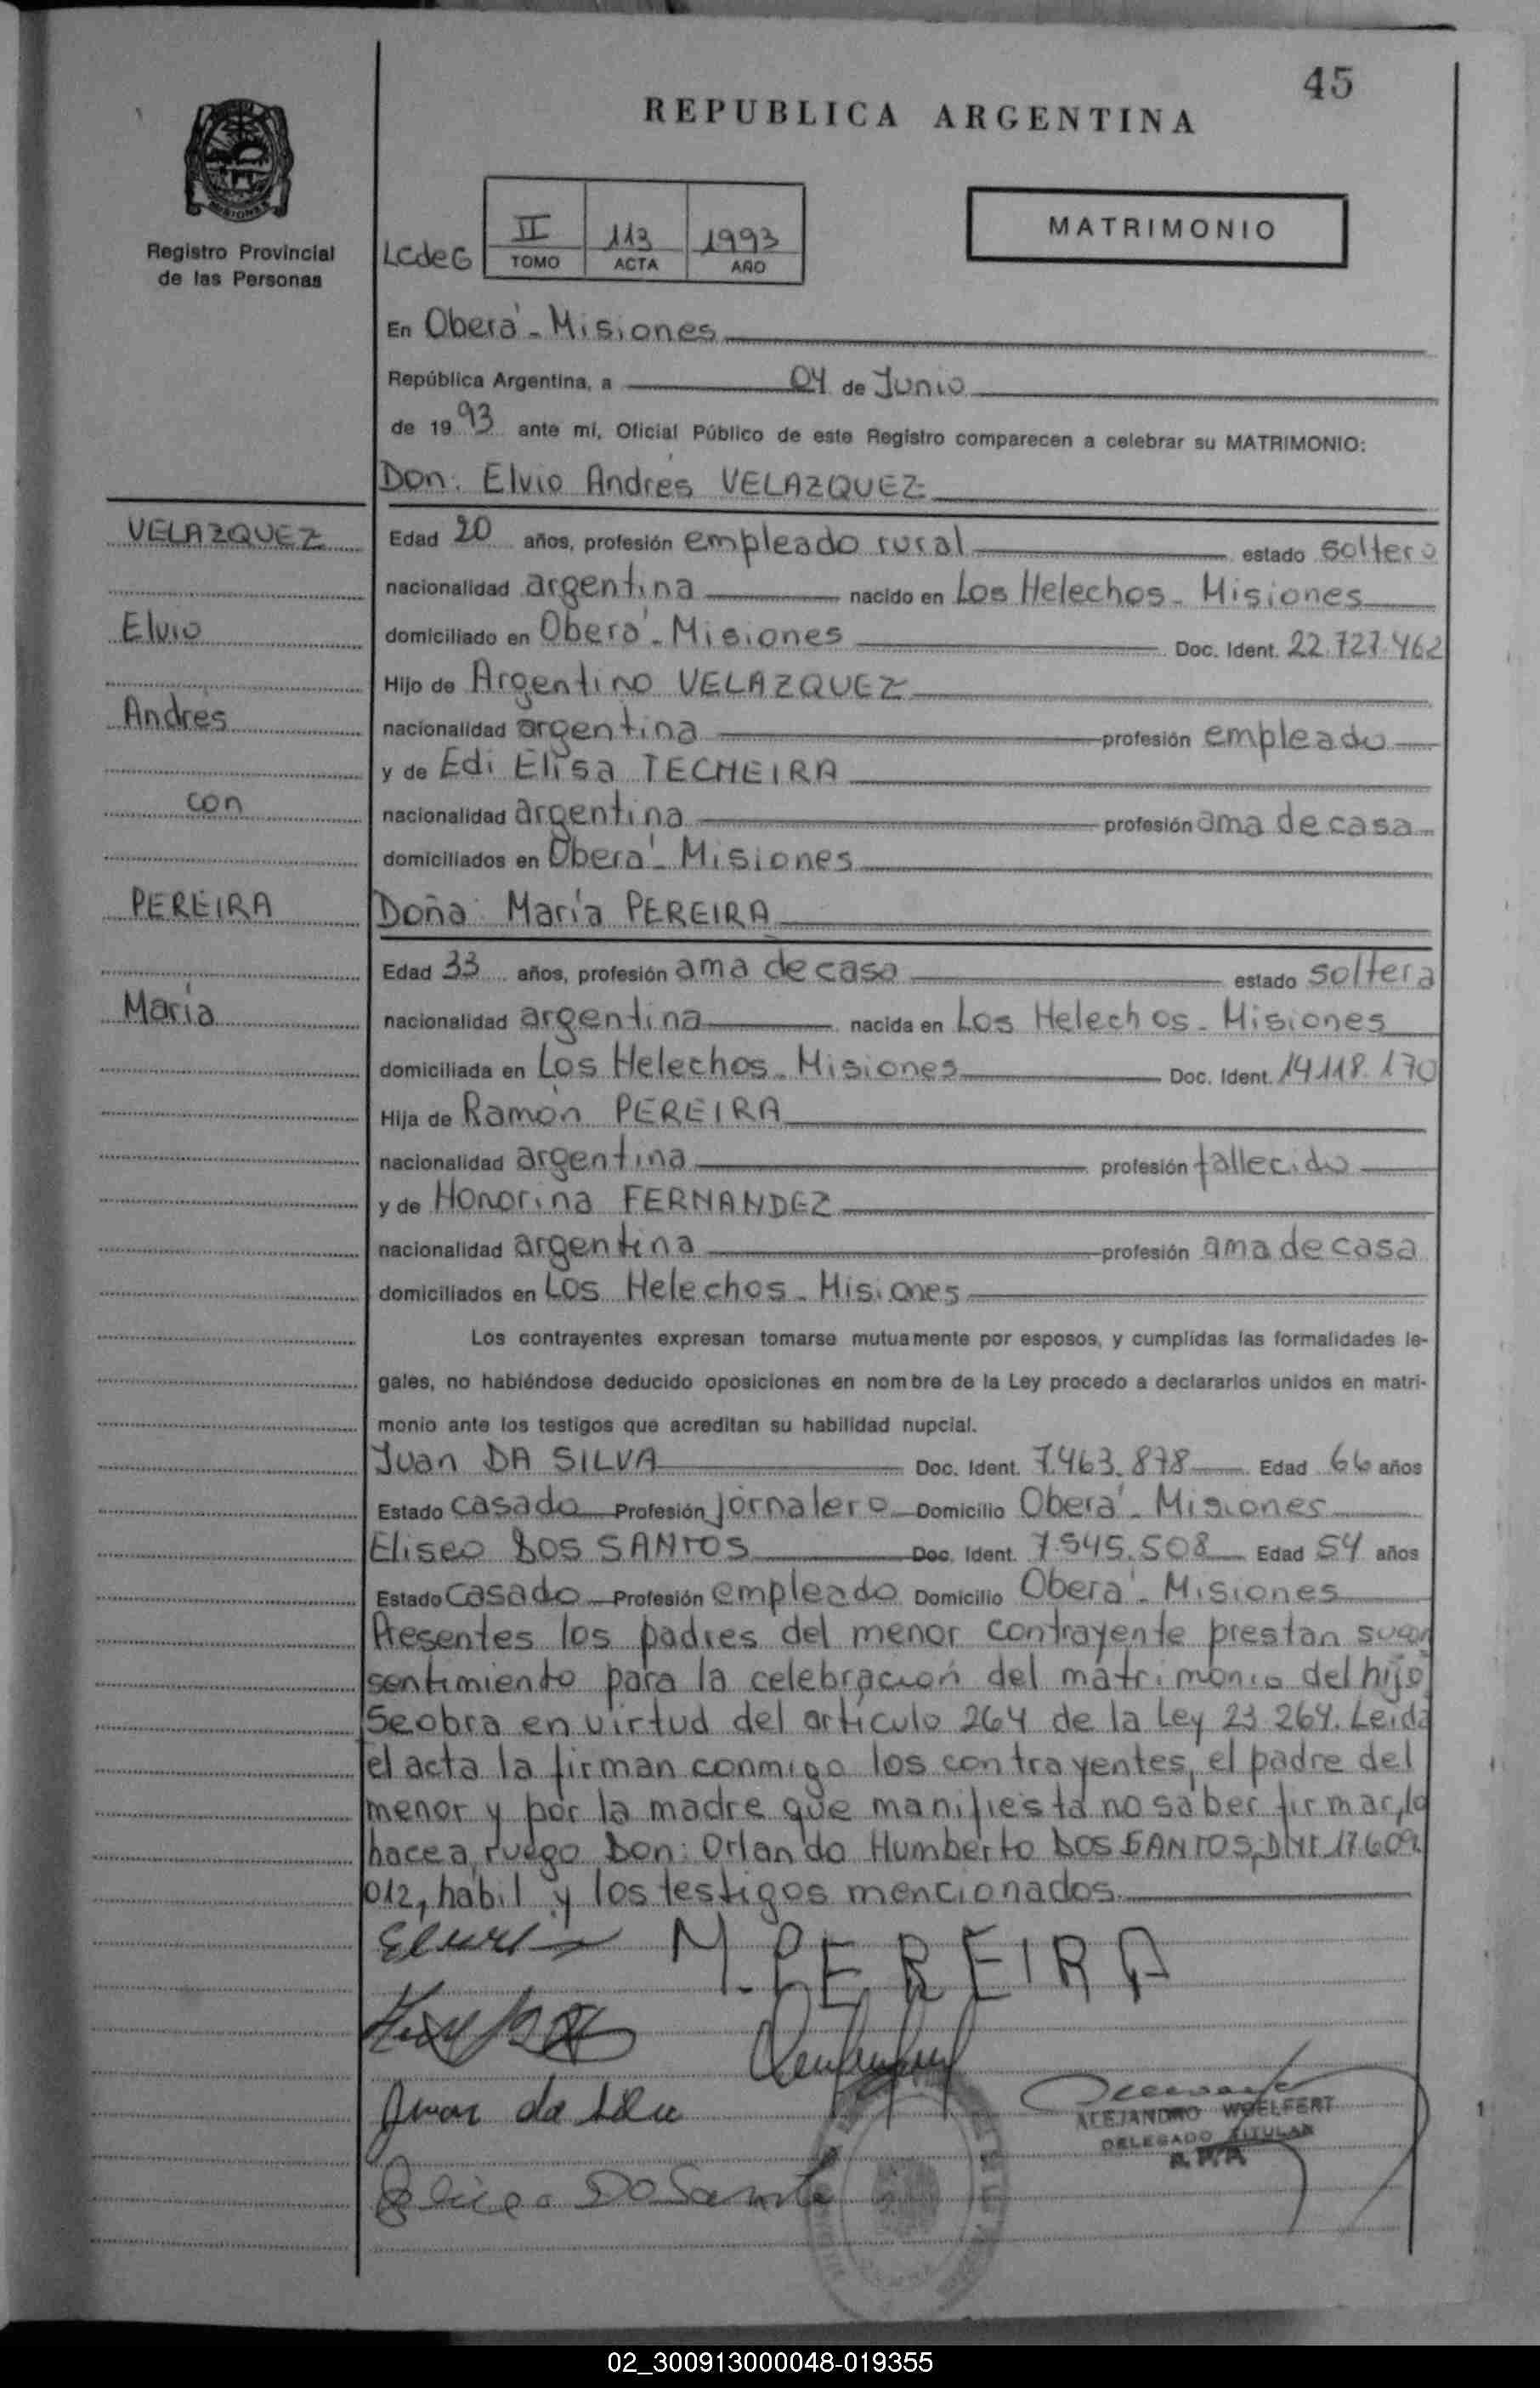 45
REPUBLICA ARGENTINA
MISIONES
Registro Provincial
de las Personas
LCdeG
II 113 1993
TOMO ACTA AÑO
MATRIMONIO
En Oberá - Misiones
República Argentina, a 04 de Junio
de 1993 ante mí, Oficial Público de este Registro comparecen a celebrar su MATRIMONIO:
Don: Elvio Andrés VELAZQUEZ
VELAZQUEZ
Elvio
Andrés
con
PEREIRA
María
Edad 20 años, profesión empleado rural estado soltero
nacionalidad argentina nacido en Los Helechos - Misiones
domiciliado en Oberá - Misiones Doc. Ident. 22.727.462
Hijo de Argentino VELAZQUEZ
nacionalidad argentina profesión empleado
y de Edi Elisa TECHEIRA
nacionalidad argentina profesión ama de casa
domiciliados en Oberá - Misiones
Doña: María PEREIRA
Edad 33 años, profesión ama de casa estado soltera
nacionalidad argentina nacida en Los Helechos - Misiones
domiciliada en Los Helechos - Misiones Doc. Ident. 14.118.170
Hija de Ramón PEREIRA
nacionalidad argentina profesión fallecido
y de Honorina FERNANDEZ
nacionalidad argentina profesión ama de casa
domiciliados en Los Helechos - Misiones
Los contrayentes expresan tomarse mutuamente por esposos, y cumplidas las formalidades le-
gales, no habiéndose deducido oposiciones en nombre de la Ley procedo a declararlos unidos en matri-
monio ante los testigos que acreditan su habilidad nupcial.
Juan DA SILVA Doc. Ident. 7.463.878 Edad 66 años
Estado casado Profesión jornalero Domicilio Oberá - Misiones
Eliseo DOS SANTOS Doc. Ident. 7.545.508 Edad 54 años
Estado casado Profesión empleado Domicilio Oberá - Misiones
Presentes los padres del menor contrayente prestan su con
sentimiento para la celebración del matrimonio del hijo
Se obra en virtud del artículo 264 de la Ley 23.264. Leida
el acta la firman conmigo los contrayentes, el padre del
menor y por la madre que manifiesta no saber firmar, lo
hace a ruego Don: Orlando Humberto DOS SANTOS, DNI 17.609.
012, habil y los testigos mencionados.
M. PEREIRA
Juan da
ALEJANDRO WOELFERT
DELEGADO TITULAR
R.P.P.
02_300913000048-019355